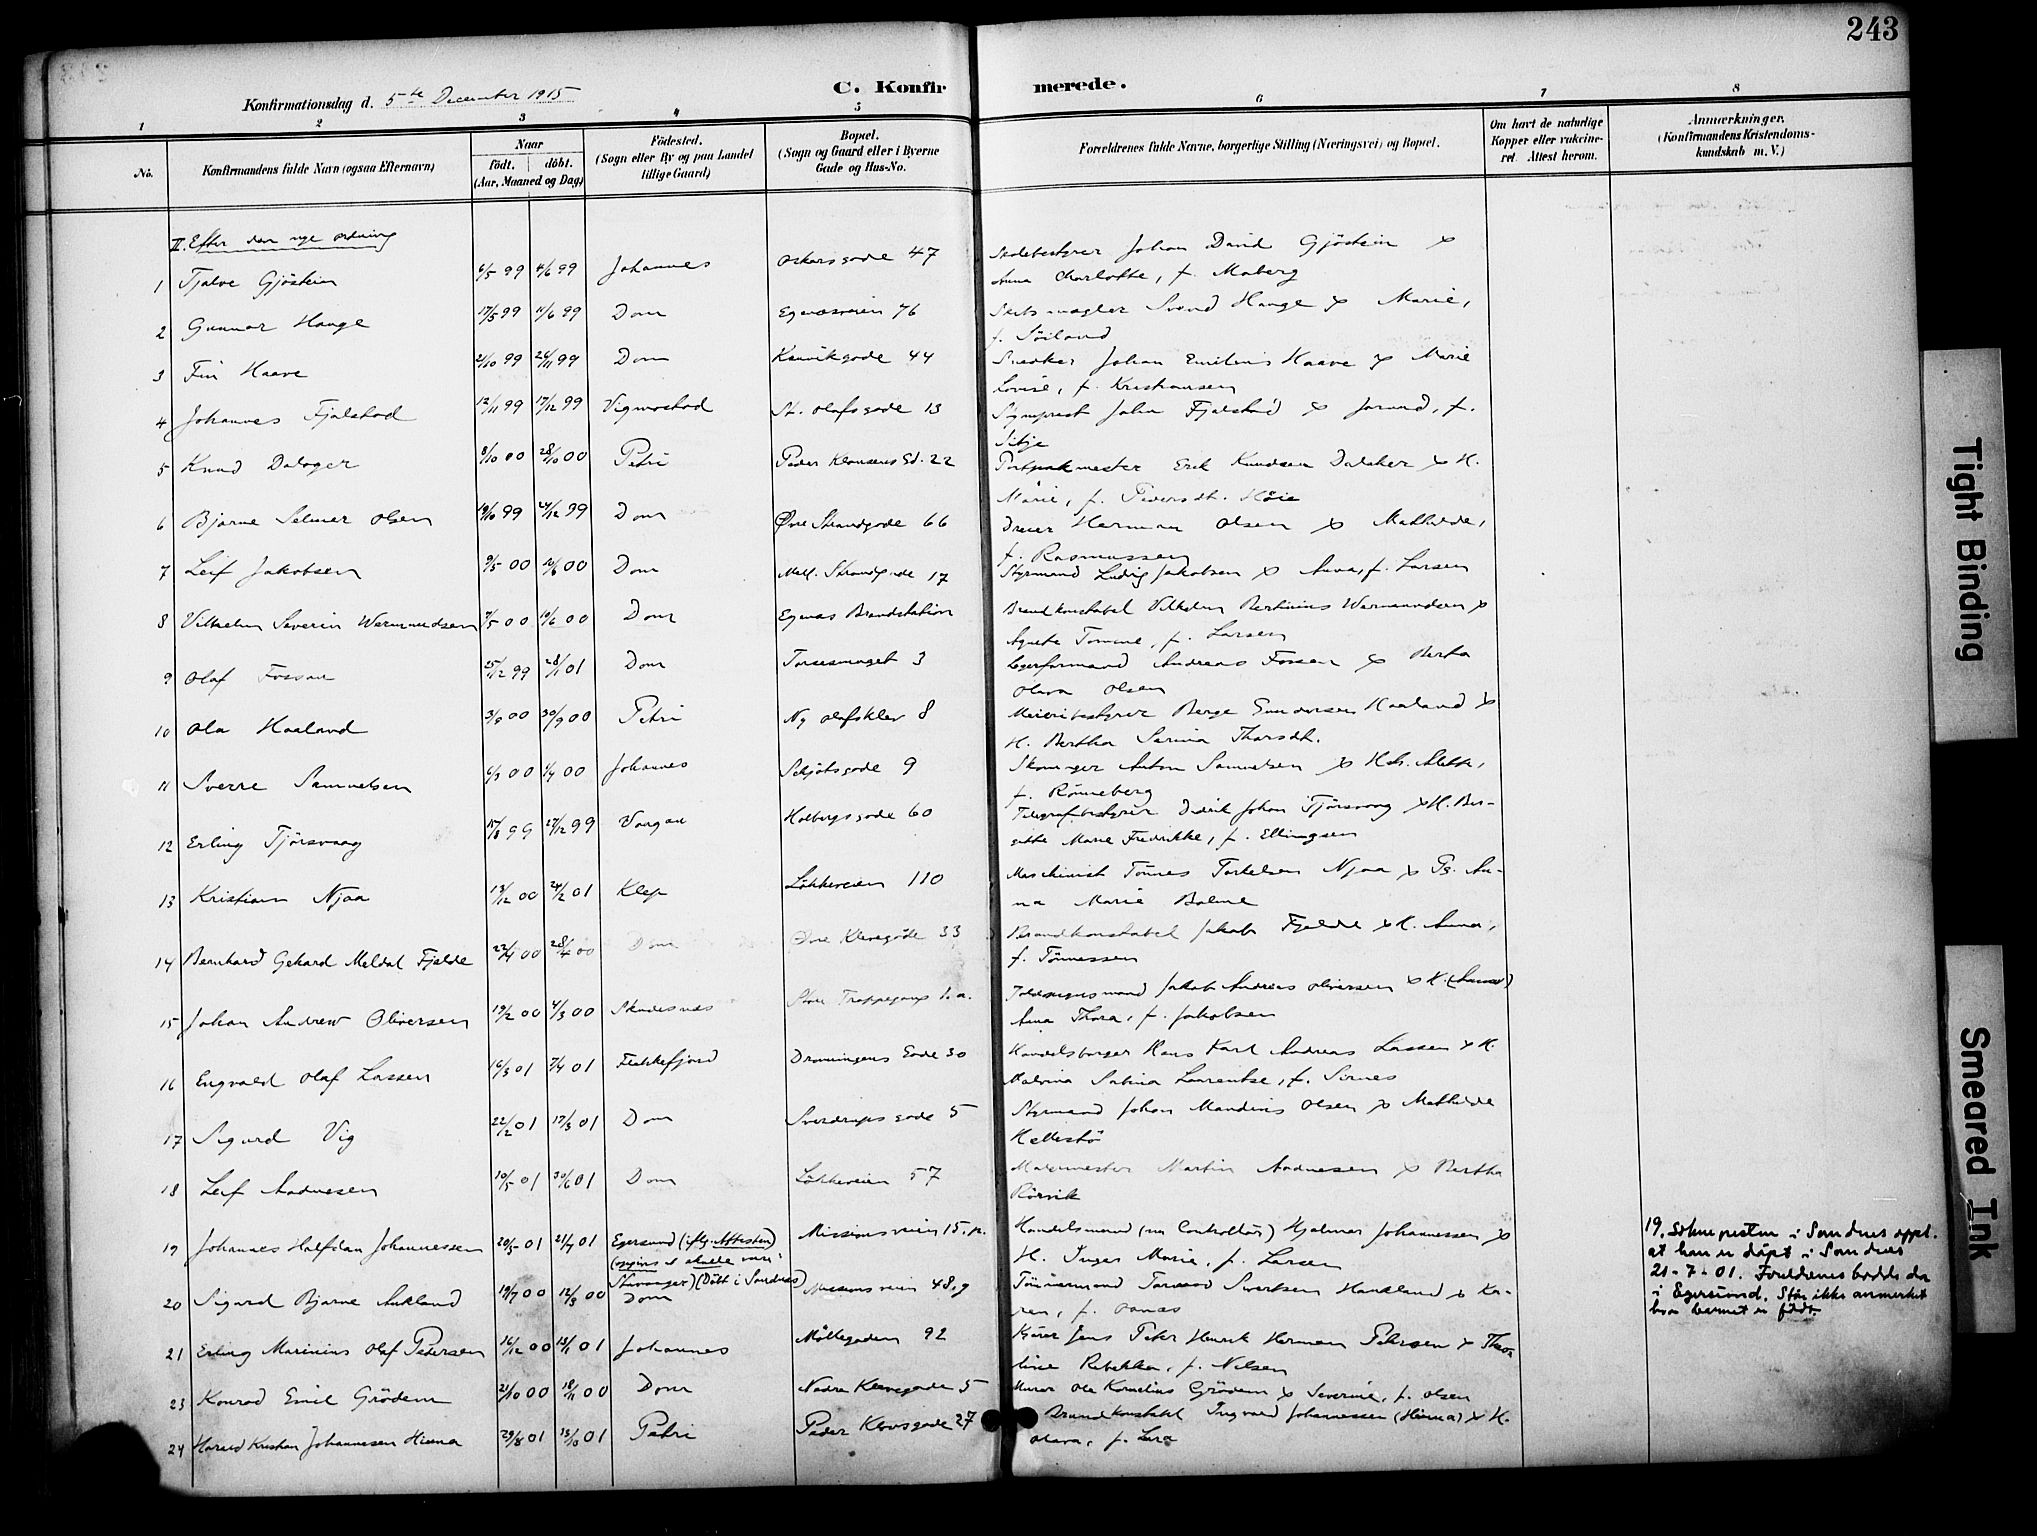 243
Konfirmationsdag d. 5te December 1915
C. Konfirmerede.
1 2 3 4 5 6 7 8
No.
Konfirmandens fulde Navn (ogsaa Efternavn)
Naar
födt. döbt.
(Aar, Maaned og Dag)
Födested.
(Sogn eller By og paa Landet
tillige Gaard)
Bopæl.
(Sogn og Gaard eller i Byerne
Gade og Hus-No.
Forældrenes fulde Navne, borgerlige Stilling (Næringsvei) og Bopæl.
Om havt de naturlige
Kopper eller vakcine-
ret Attest herom.
Anmærkninger.
(Konfirmandens Kristendoms-
kundskab m. V.)
II. Efter den nye ordning
1 Tjalve Gjöstein 6/5 99 4/6 99 Johannes Oskarsgade 47 Skolebestyrer Johan David Gjöstein &
Anna Charlotte, f. Moberg
2 Gunnar Hauge 17/5 99 11/6 99 Dom Egenæsveien 76 Skibsmægler Svend Hauge & Marie,
f. Söiland
3 Fin Haave 21/10 99 26/11 99 Dom Kanvikgade 44 Snedker Johan Emilius Haave & Marie
Lovise, f. Kristiansen
4 Johannes Fjalstad 12/11 99 17/12 99 Vigmostad St. Olafsgade 13 Sognprest John Fjalstad & Jorund, f.
5 Knud Dalager 8/10 00 28/10 00 Petri Peder Klausens Gd. 22 Erik Knudsen & H.
Marie, f. Pedersdt. Höie
6 Bjarne Selmer Olsen 19/10 99 24/12 99 Dom Øvre Strandgade 66 Dreier Herman Olsen & Mathilde,
f. Rasmussen
7 Leif Jakobsen 9/5 00 Dom Mell. Strandgade 17 Styrmand Ludvig Jakobsen & Anna, f. Larsen
8 Vilhelm Severin Wermundsen 7/5 00 10/6 00 Dom Egenæs Brandstation Brandkonstabel Vilhelm Bertinius Wermundsen &
Agnete Tomine, f. Larsen
9 Olaf Fossan 25/12 99 28/1 01 Dom 3 Lagerformand Andreas Fossan & Berta
Olava Olsen
10 Ola Haaland 3/9 00 30/9 00 Petri Ny Olafsklev 8 Meieribestyrer Berge Gundersen Haaland &
H. Bertha Serina Thorsdt.
11 Sverre Samuelsen 6/3 00 1/4 00 Johannes Schjötsgade 9 Anton Samuelsen &
f. Rönneberg
12 Erling Tjörsvaag 15/8 99 27/12 99 Vaagan Holbergsgade 60 Telegrafbestyrer Didrik Johan Tjörsvaag & H. Ber-
gitte Marie Fredrikke, f. Ellingsen
13 Kristian Njaa 13/12 00 24/2 01 Klep Lökkeveien 110 Maschinist Tönnes Torkelsen Njaa & An-
na Marie
14 Bernhard Gehard Meldal Fjelde 22/4 00 Dom Övre Klevegade 33 Brandkonstabel Jakob Fjelde & H. Anna,
f. Tönnessen
15 Johan Andrew Oliversen 19/2 00 4/3 00 Skudesnæs Store Trappegang 1.a. Jakob Andreas Oliversen & H.
Anna Thora, f. Jakobsen
16 Engvald Olaf Lassen 16/3 01 7/4 01 Flekkefjord Dronningens Gade 30 Handelsborger Hans Karl Andreas Lassen & H.
Malvina Sabina Laurentse, f. Sirnes
17 Sigurd Vig 22/2 01 17/3 01 Dom Sverdrupsgade 5 Styrmand Johan Mandius Olsen & Mathilde
Hellestö
18 Leif Aadnesen 10/5 01 30/6 01 Dom Lökkeveien 57 Malermester Martin Aadnesen & Bertha
Rörvik
19 Johannes Halfdan Johannessen 20/5 01 21/7 01 Egersund (iflg. Attesten)
(opgives at skulle være
Stavanger) (Döbt i Sandnes) Missionsveien 15. p. Handelsmand (nu Controllör) Hjalmar Johannessen &
H. Inga Marie, f. Larsen
19. Sokneprestem i Sandnes oppl.
at han er döpt i Sandnes
21-7-01. Foreldrenes bodde da
i Egersund. Står ikke anmerket
hvor barnet er födt.
20 Sigurd Bjarne Aukland 19/7 00 12/8 00 Dom Missionsveien 48, 9 Tönnemand Sivertsen & Ka-
ren, f.
21 Erling Marinius Olaf Petersen 16/12 00 13/1 01 Johannes Möllegaden 92 Jens Peter Henrik Herman Petersen & Thora
line Rebekka, f. Nilsen
23 Konrad Emil Grödem 21/10 00 18/11 00 Dom Nedre Klevegade 5 Murer Ole Kornelius Grödem & Severine, f. Olsen
24 Harald Kristian Johannesen Hinna 29/8 01 13/10 01 Petri Peder Klowsgade 27 Brandkonstabel Ingvald Johannessen (Hinna) & H.
Olava, f. Lura
Tight Binding
Smeared Ink